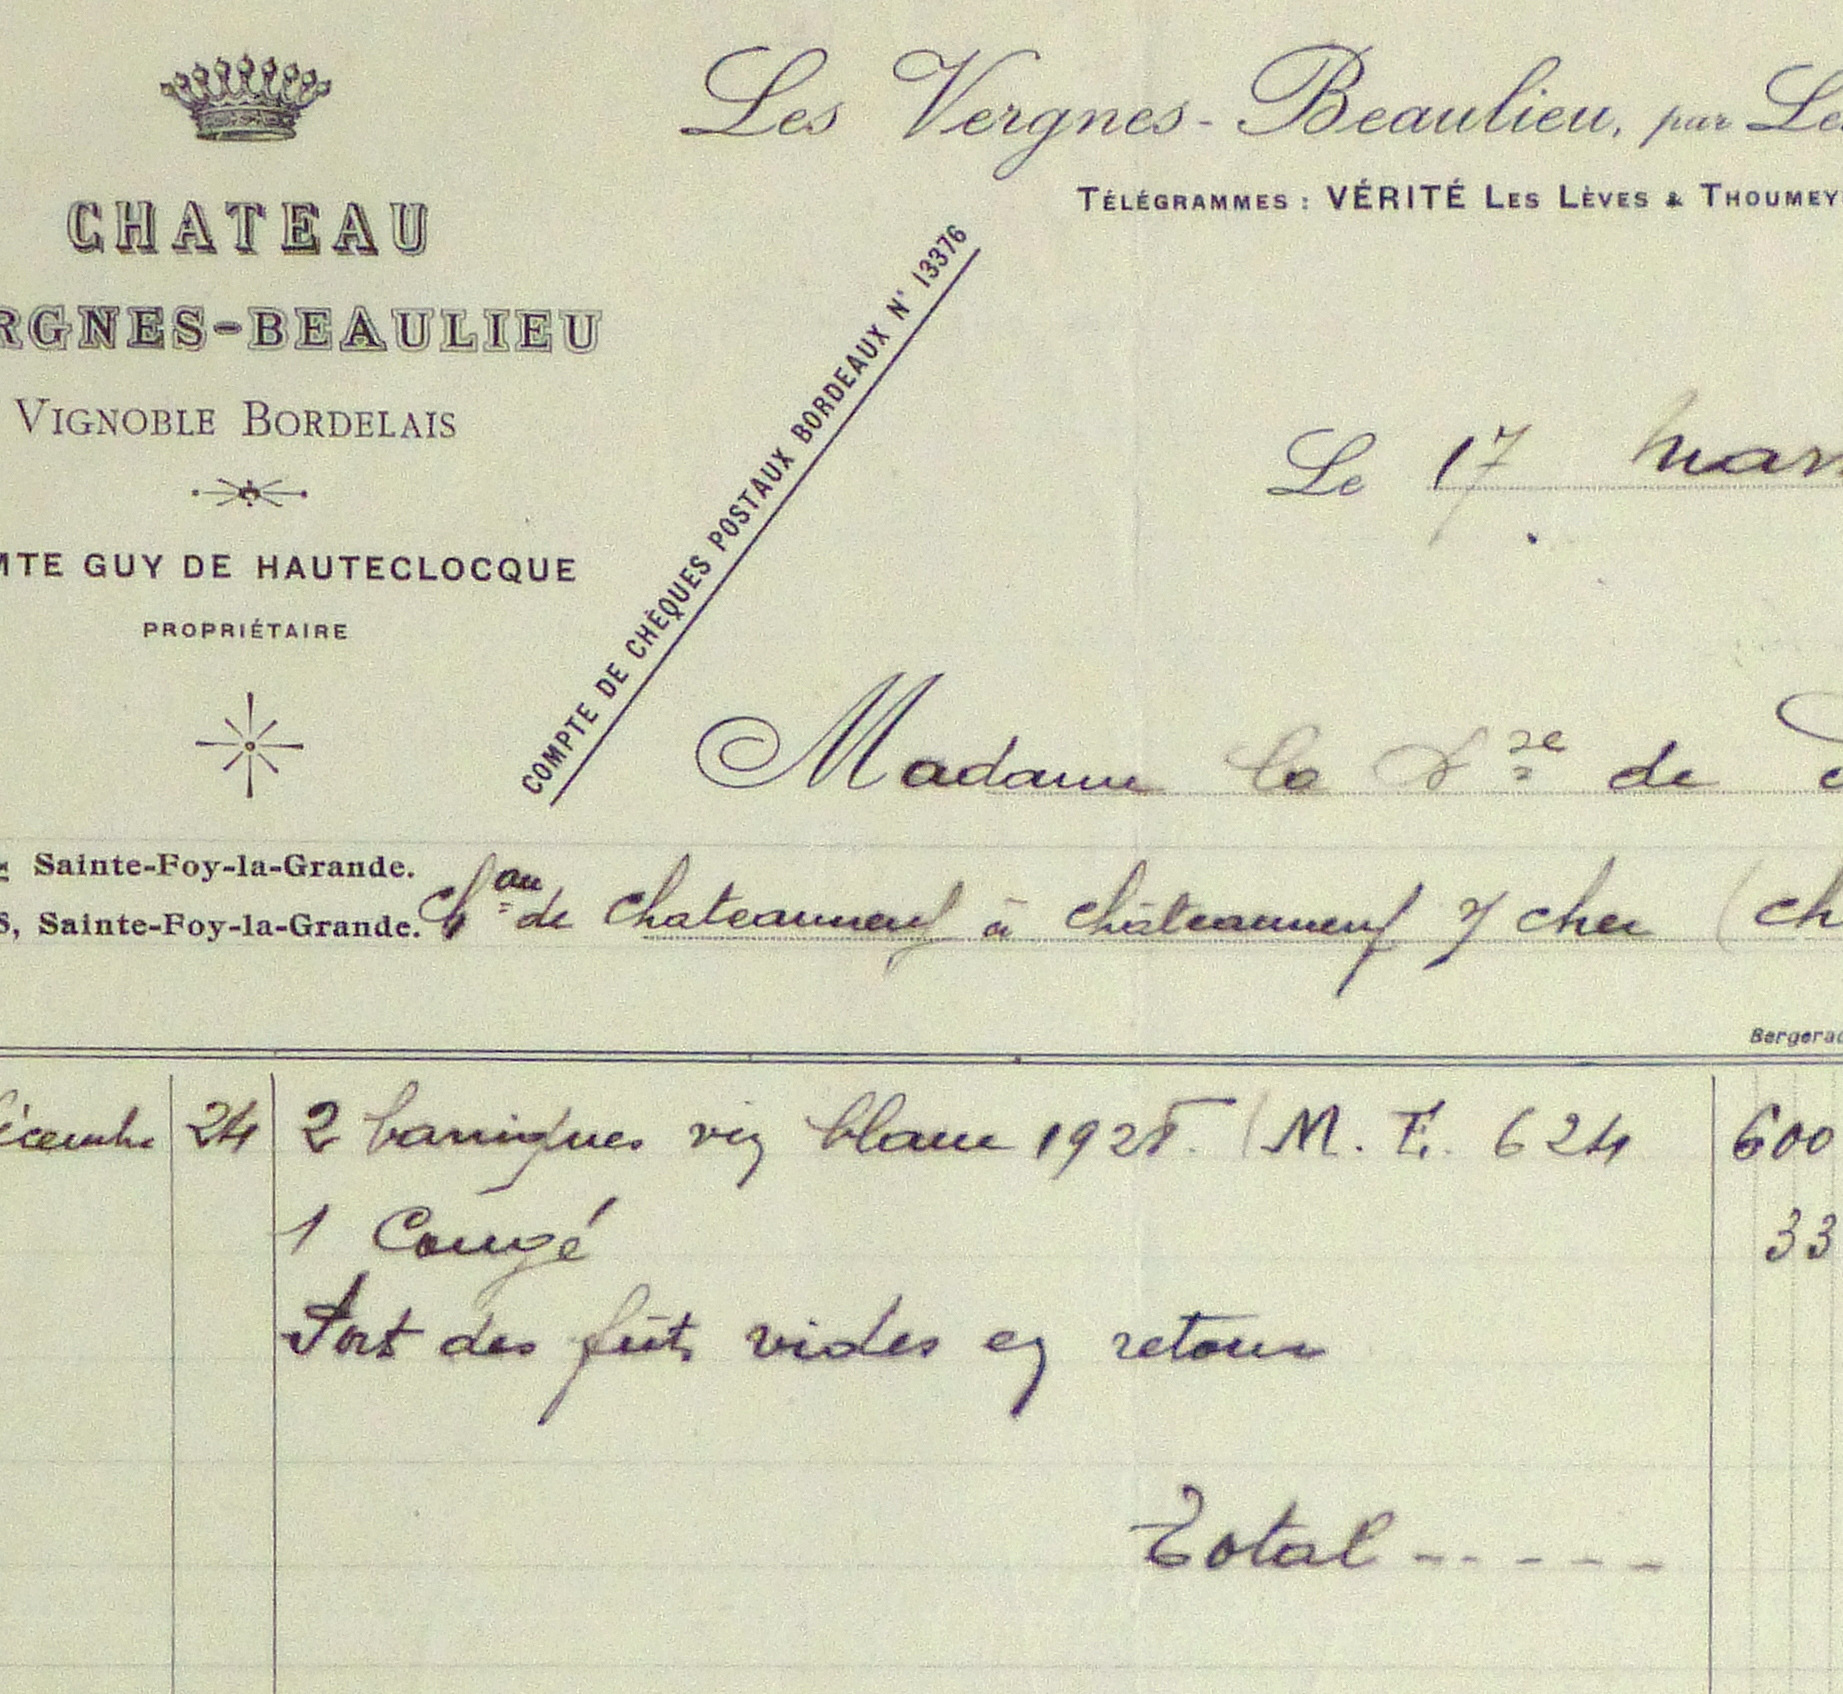 Les Vergnes-Beaulieu, par Le
TÉLÉGRAMMES : VÉRITÉ LES LÈVES & THOUMEY
CHATEAU
RGNES-BEAULIEU
VIGNOBLE BORDELAIS
MTE GUY DE HAUTECLOCQUE
PROPRIÉTAIRE
COMPTE DE CHÈQUES POSTAUX BORDEAUX N° 13376
Le 17 mars
Madame la de
Sainte-Foy-la-Grande.
S, Sainte-Foy-la-Grande.
Chau de Chateauneuf à Châteauneuf s/ Cher (Ch
Bergerac
décembre 24 2 barriques vin blanc 1925. (M. E. 624 600
1 Congé 33
Port des fûts vides en retour
Total -----